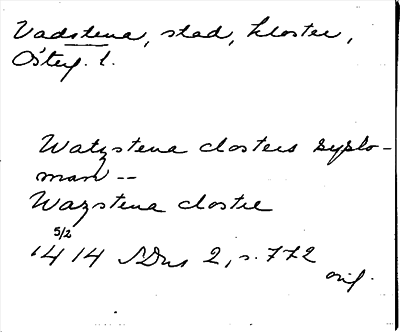 Vadstena, stad, kloster,
Österg. l.
Watzstena closters syslo-
man --
Wazstena closter
5/2
1414 SDns 2, s. 772
orig.